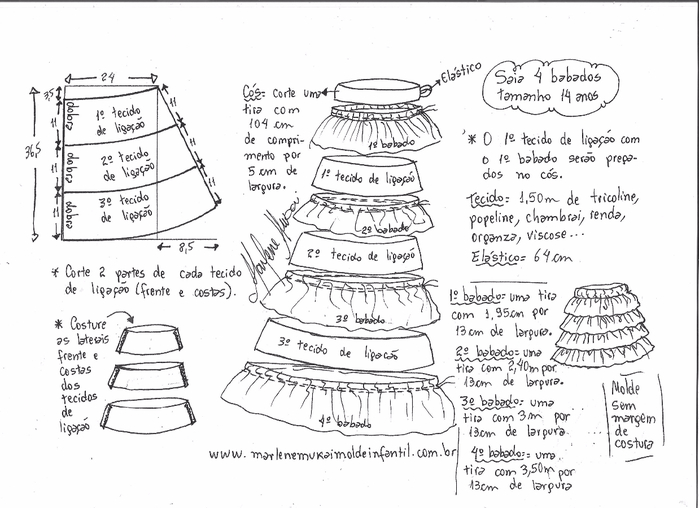 24
3,5
11
11
11
11
11
11
36,5
8,5
dobra
dobra
dobra
1º tecido
de ligação
2º tecido
de ligação
3º tecido
de ligação
* Corte 2 partes de cada tecido
de ligação (frente e costas).
* Costure
as laterais
frente e
costas
dos
tecidos
de
ligação
Cós= Corte uma
tira com
104 cm
de compri-
mento por
5 cm de
largura.
Elástico
1º babado
1º tecido de ligação
2º babado
2º tecido de ligação
3º babado
3º tecido de ligação
4º babado
Marlene Mukai
www.marlenemukaimoldeinfantil.com.br
Saia 4 babados
tamanho 14 anos
* O 1º tecido de ligação com
o 1º babado serão prega-
dos no cós.
Tecido= 1,50m de tricoline,
popeline, chambrai, renda,
organza, viscose...
Elástico= 64cm
1º babado= uma tira
com 1,95cm por
13cm de largura.
2º babado= uma
tira com 2,40m por
13cm de largura.
3º babado= uma
tira com 3m por
13cm de largura.
4º babado= uma
tira com 3,50m por
13cm de largura
Molde
sem
margem
de
costura